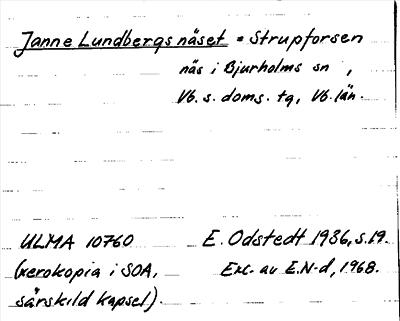 Janne Lundbergs näset = Strupforsen
näs i Bjurholms sn ,
Vb. s. doms. tg, Vb. län.
ULMA 10760 E. Odstedt 1936, s. 19.
(xerokopia i SOA, Exc. av E.N-d, 1968.
särskild kapsel).